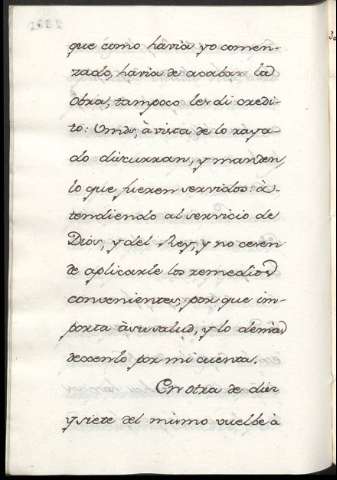 que como havia yo comen-
zado, havia de acabar la
Obra, tampoco les di credi-
to: Vmds, à vista de lo raya
do discurran, y manden,
lo que fueren servidos: à-
tendiendo al servicio de
Dios, y del Rey, y no cesen
de aplicarle los remedios
convenientes, por que im-
porta à su salud, y lo demàs
dexenlo por mi cuenta.
En otra de diez
y siete del mismo vuelbe à